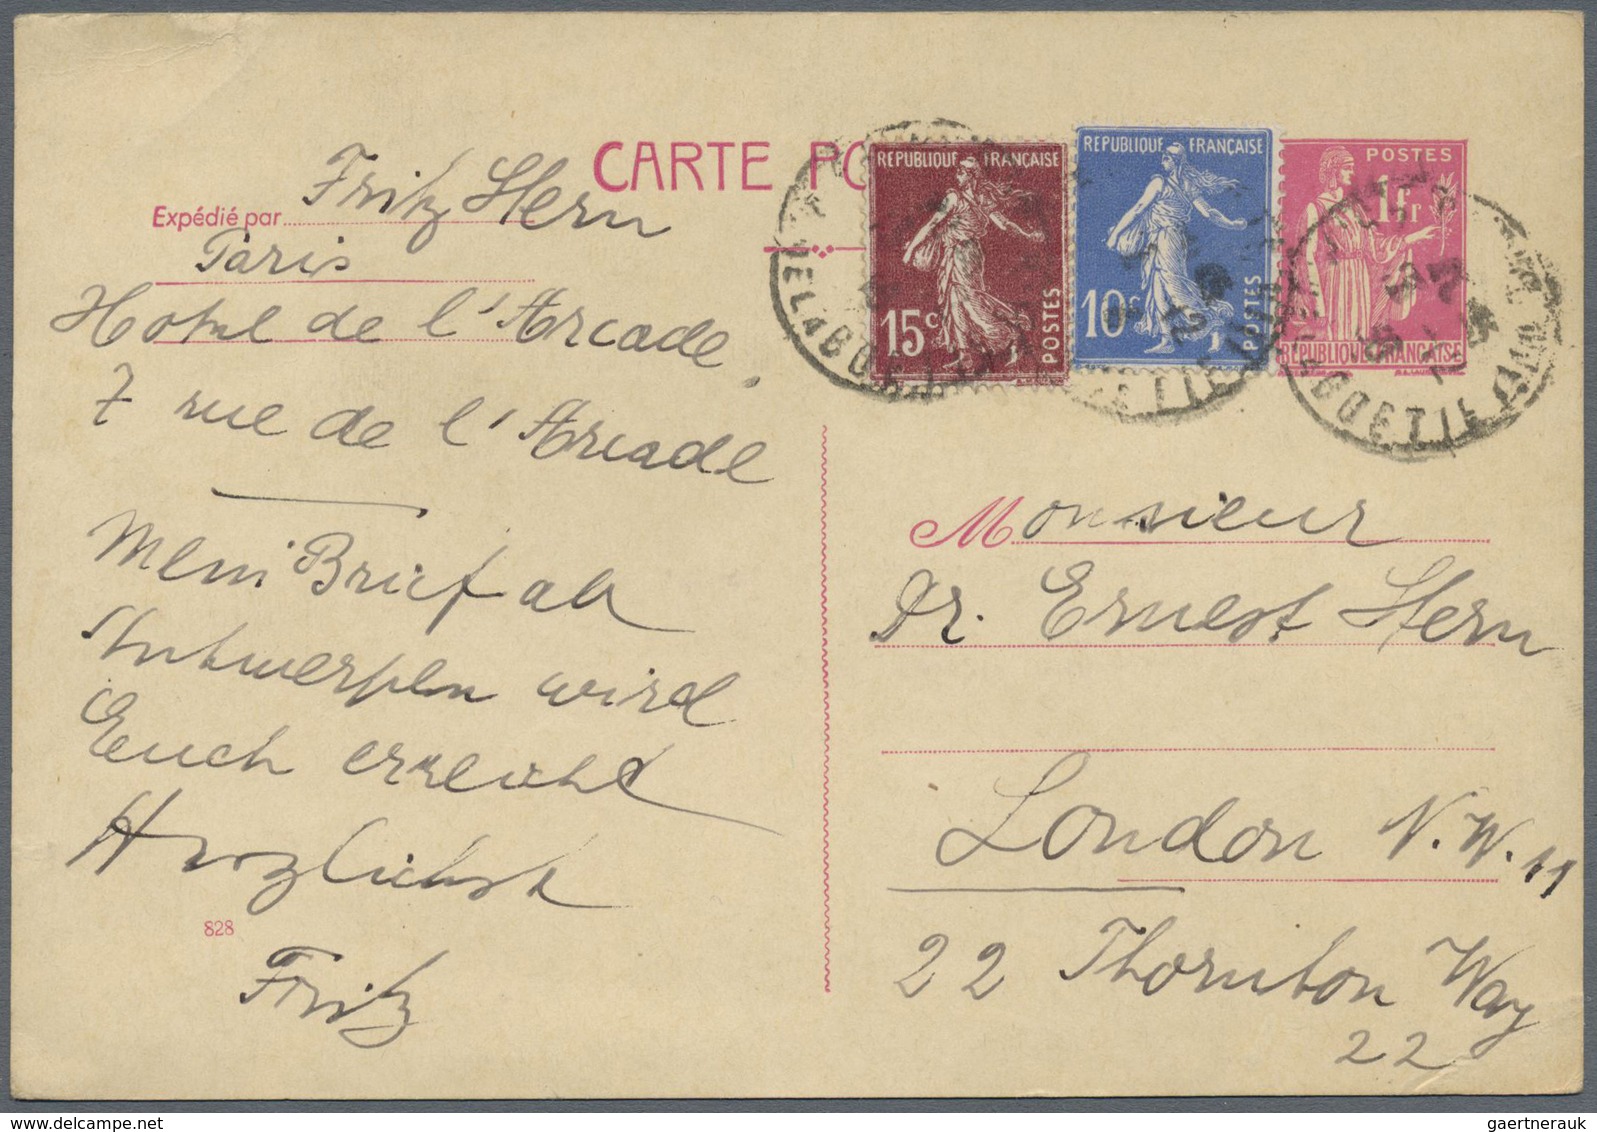 CARTE PO
Expédié par Fritz Stern
Paris
Hotel de l'Arcade
7 rue de l'Arcade
Mein Brief ab
Antwerpen wird
Euch erreicht
Herzlichst
828
Fritz
REPUBLIQUE FRANÇAISE
15c
POSTES
REPUBLIQUE FRANÇAISE
10c
POSTES
POSTES
1Fr
REPUBLIQUE FRANÇAISE
Monsieur
Dr. Ernest Stern
London N.W. 11
22 Thornton Way
22
gaertnerauk